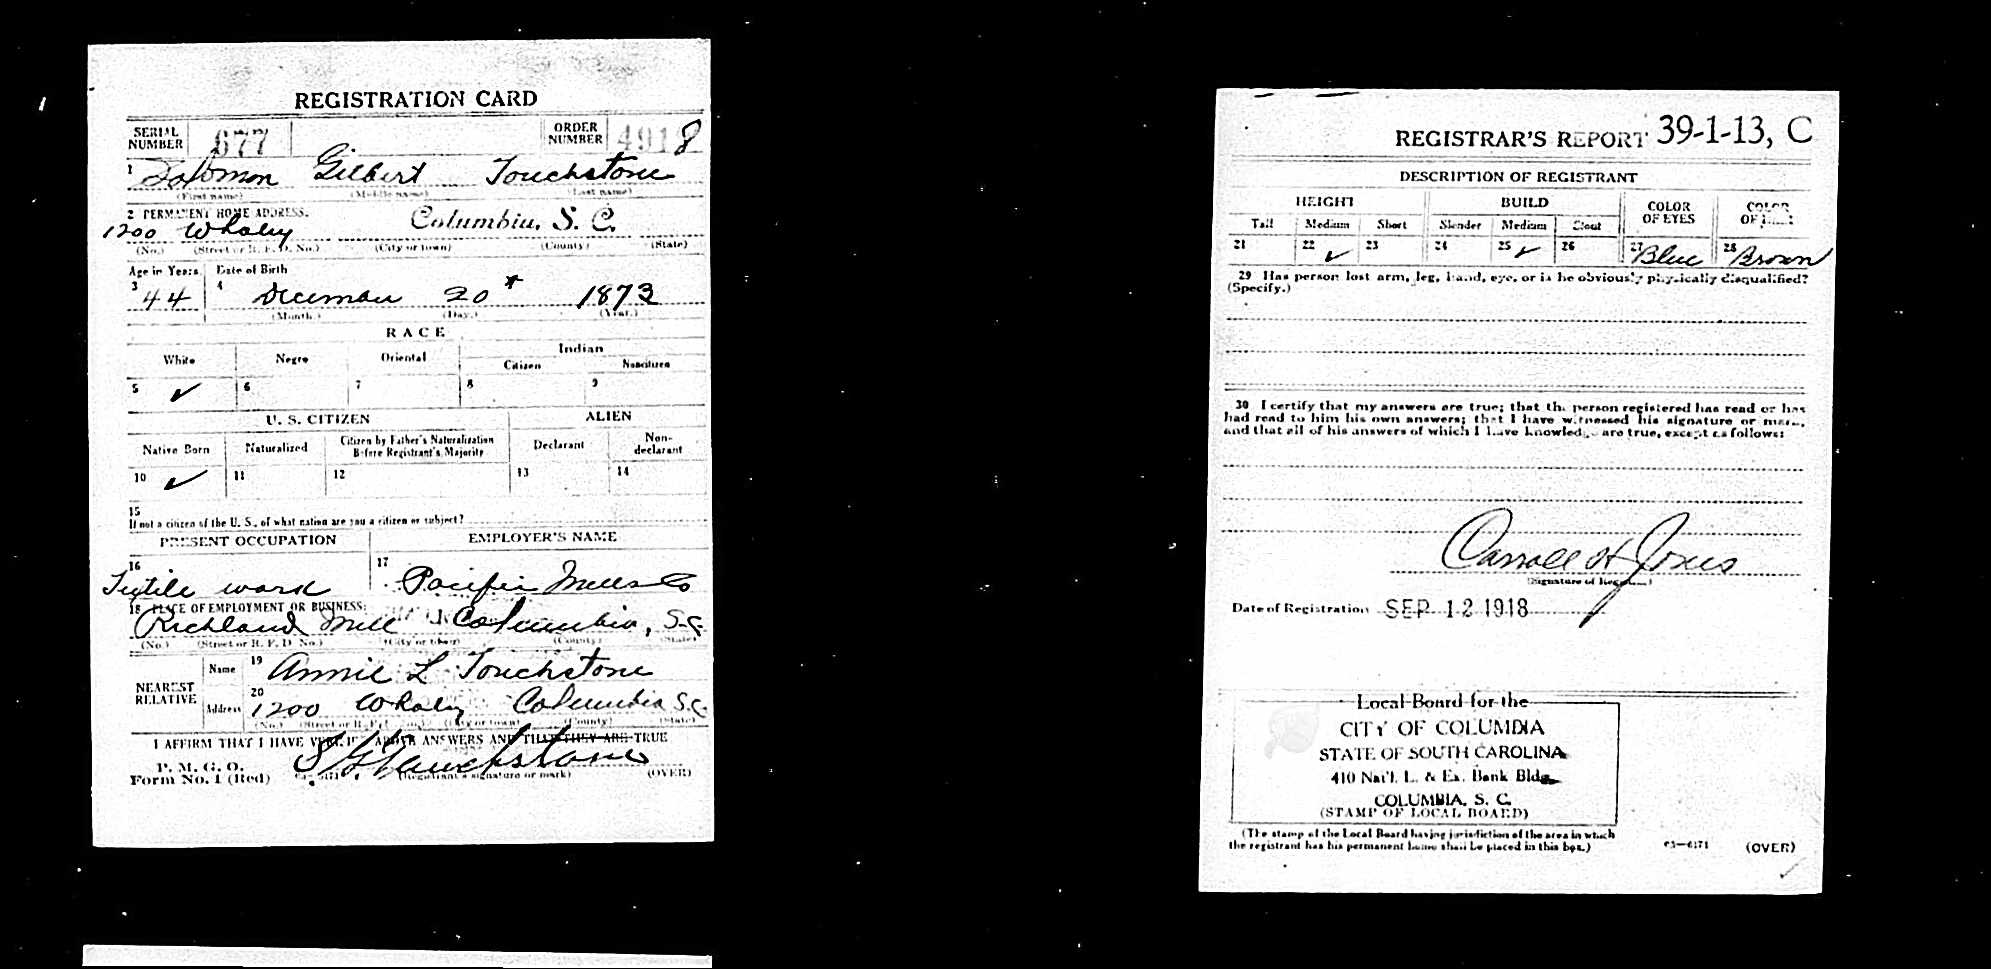 REGISTRATION CARD
SERIAL NUMBER 677 ORDER NUMBER 4918
1 Solomon Gilbert Touchstone
(First name) (Middle name) (Last name)
2 PERMANENT HOME ADDRESS.
1200 Whaley Columbia, S. C.
(No.) (Street or R. F. D. No.) (City or town) (County) (State)
Age in Years Date of Birth
3 44 4 20 1873
(Month.) (Day.) (Year.)
RACE
White Negro Oriental Indian
Citizen Noncitizen
5 ✓ 6 7 8 9
U. S. CITIZEN ALIEN
Native Born Naturalized Citizen by Father's Naturalization Before Registrant's Majority Declarant Non-declarant
10 ✓ 11 12 13 14
15
If not a citizen of the U. S., of what nation are you a citizen or subject?
PRESENT OCCUPATION EMPLOYER'S NAME
16 Textile work 17 Pacific Mills Co
18 PLACE OF EMPLOYMENT OR BUSINESS:
Richland Mill Columbia, S.C.
(No.) (Street or R. F. D. No.) (City or town) (County) (State)
NEAREST RELATIVE Name 19 Annie L Touchstone
Address 20 1200 Whaley Columbia S.C.
(No.) (Street or R. F. D. No.) (City or town) (County) (State)
I AFFIRM THAT I HAVE VERIFIED ABOVE ANSWERS AND THAT THEY ARE TRUE
P. M. G. O.
Form No. 1 (Red) S. G. Touchstone
(Registrant's signature or mark) (OVER)
REGISTRAR'S REPORT 39-1-13, C
DESCRIPTION OF REGISTRANT
HEIGHT BUILD COLOR OF EYES COLOR OF HAIR
Tall Medium Short Slender Medium Stout
21 22 ✓ 23 24 25 ✓ 26 27 Blue 28 Brown
29 Has person lost arm, leg, hand, eye, or is he obviously physically disqualified?
(Specify.)
30 I certify that my answers are true; that the person registered has read or has
had read to him his own answers; that I have witnessed his signature or mark,
and that all of his answers of which I have knowledge are true, except as follows:
Carroll H Jones
(Signature of Registrar)
Date of Registration SEP 12 1918
Local Board for the
CITY OF COLUMBIA
STATE OF SOUTH CAROLINA
410 Nat'l. L. & Ex. Bank Bldg.
COLUMBIA, S. C.
(STAMP OF LOCAL BOARD)
(The stamp of the Local Board having jurisdiction of the area in which
the registrant has his permanent home shall be placed in this box.)
03—6171 (OVER)